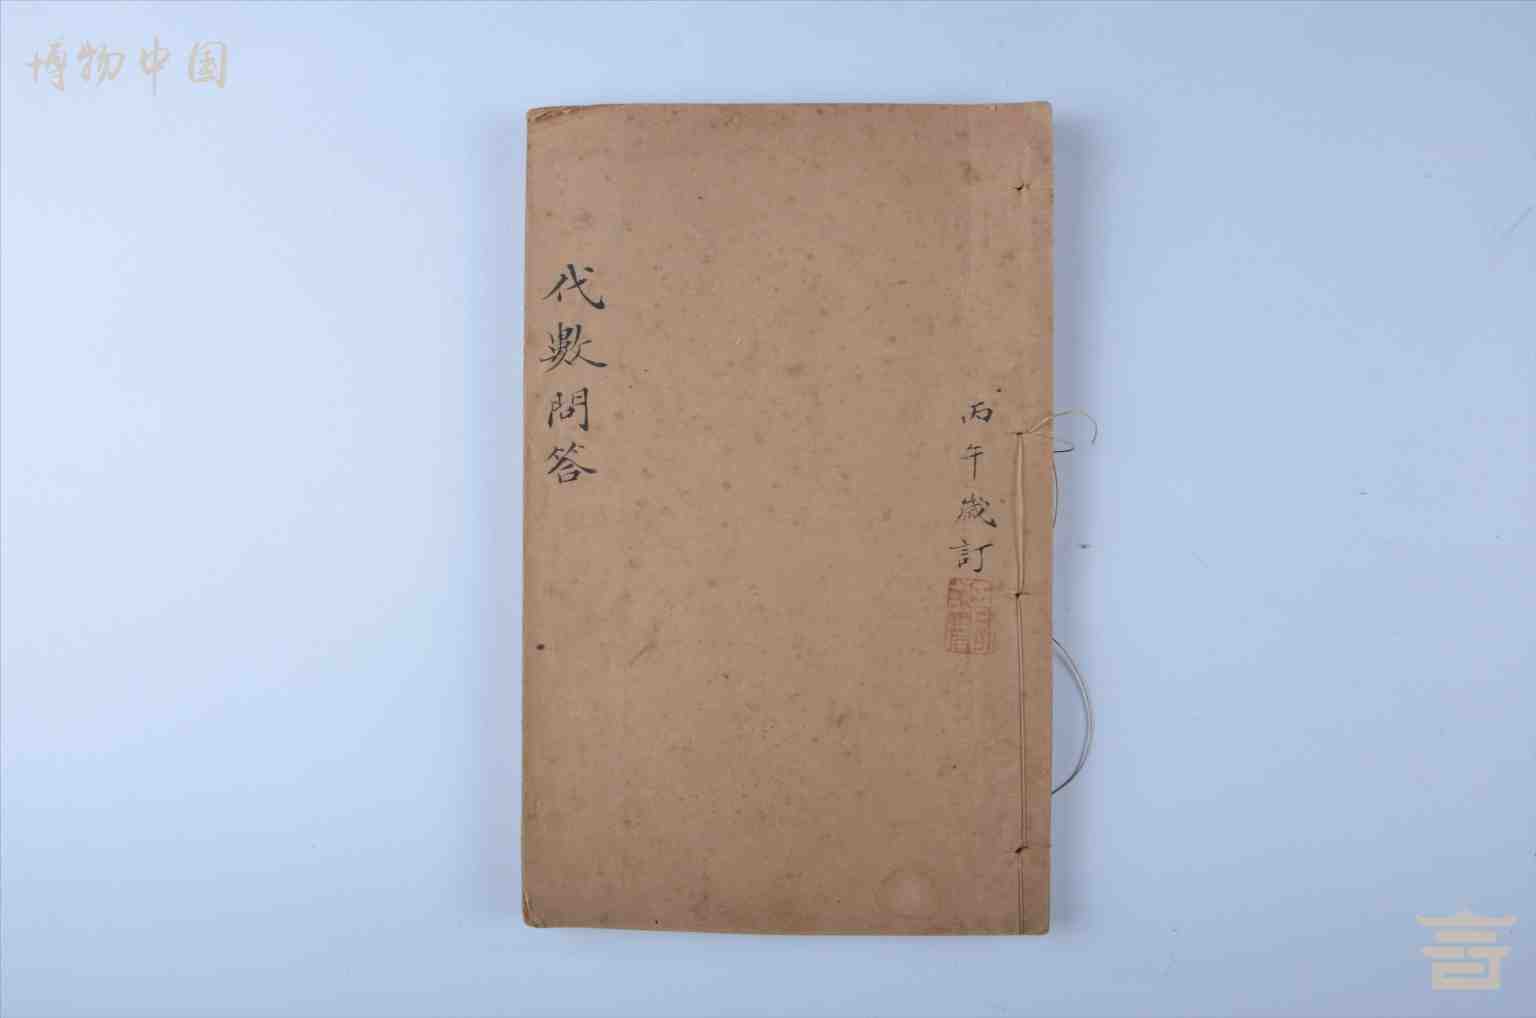 博物中国
代數問答
丙午歲訂